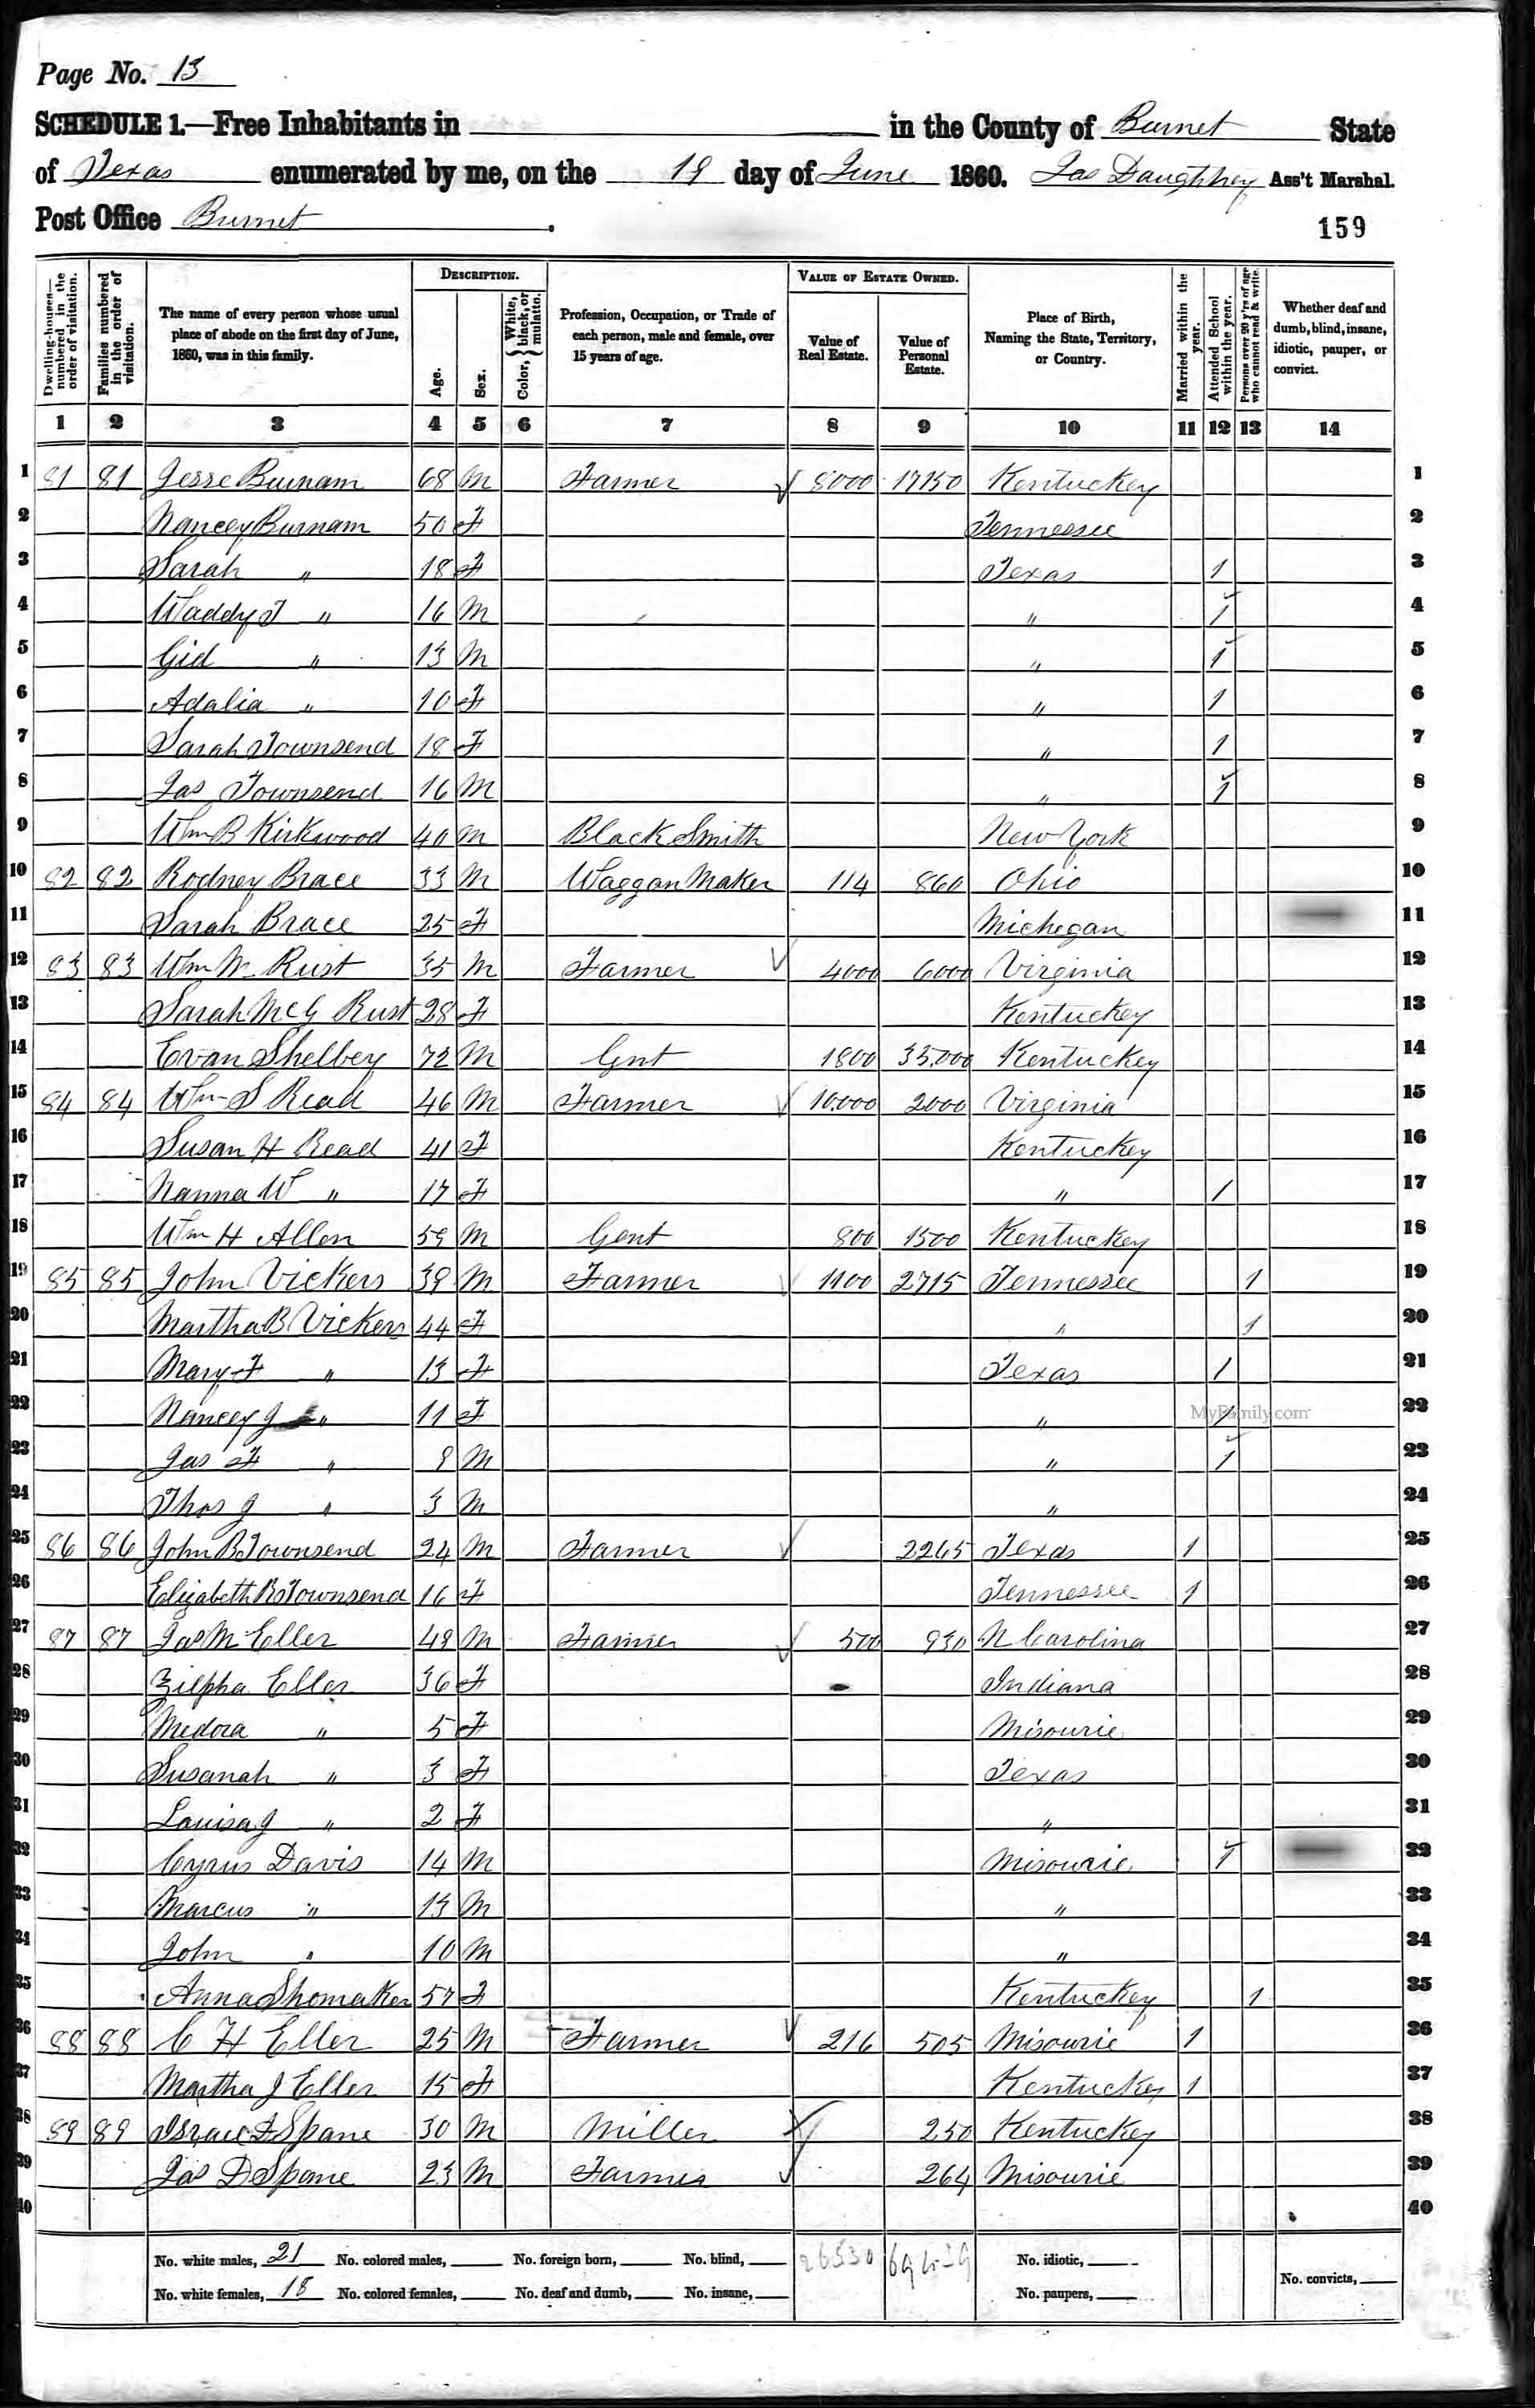 Page No. 13
SCHEDULE 1.—Free Inhabitants in in the County of Burnet State
of Texas enumerated by me, on the 19 day of June 1860. Jas Daughtrey Ass't Marshal.
Post Office Burnet .
159
Dwelling-houses—numbered in the order of visitation.
Families numbered in the order of visitation.
The name of every person whose usual place of abode on the first day of June, 1860, was in this family.
DESCRIPTION.
Age.
Sex.
Color, { White, black, or mulatto.
Profession, Occupation, or Trade of each person, male and female, over 15 years of age.
VALUE OF ESTATE OWNED.
Value of Real Estate.
Value of Personal Estate.
Place of Birth, Naming the State, Territory, or Country.
Married within the year.
Attended School within the year.
Persons over 20 y'rs of age who cannot read & write.
Whether deaf and dumb, blind, insane, idiotic, pauper, or convict.
1 2 3 4 5 6 7 8 9 10 11 12 13 14
1 81 81 Jesse Burnam 68 M Farmer 8000 17150 Kentucky 1
2 Nancey Burnam 50 F Tennessee 2
3 Sarah " 18 F Texas 1 3
4 Waddy T " 16 M " 1 4
5 Gid " 13 M " 1 5
6 Adalia " 10 F " 1 6
7 Sarah Townsend 18 F " 1 7
8 Jas Townsend 16 M " 1 8
9 Wm B Kirkwood 40 M Black Smith New York 9
10 82 82 Rodney Brace 33 M Waggan Maker 114 860 Ohio 10
11 Sarah Brace 25 F Michegan 11
12 83 83 Wm M Rust 35 M Farmer 4000 6000 Virginia 12
13 Sarah McG Rust 28 F Kentuckey 13
14 Evan Shelbey 72 M Gnt 1800 35.000 Kentuckey 14
15 84 84 Wm S Read 46 M Farmer 10.000 2000 Virginia 15
16 Susan H Read 41 F Kentuckey 16
17 Nanna W " 17 F " 1 17
18 Wm H Allen 59 M Gent 800 1500 Kentuckey 18
19 85 85 John Vickers 39 M Farmer 1100 2715 Tennessee 1 19
20 Martha B Vickers 44 F " 1 20
21 Mary F " 13 F Texas 1 21
22 Nancey J " 11 F " 1 22
MyFamily.com
23 Jas F " 9 M " 1 23
24 Thos J " 3 M " 24
25 86 86 John B Townsend 24 M Farmer 2265 Texas 1 25
26 Elizabeth R Townsend 16 F Tennessee 1 26
27 87 87 Jas M Eller 49 M Farmer 500 930 N Carolina 27
28 Zilpha Eller 36 F Indiana 28
29 Medora " 5 F Misourie 29
30 Susanah " 3 F Texas 30
31 Louisa J " 2 F " 31
32 Cyrus Davis 14 M Misourie 1 32
33 Marcus " 13 M " 33
34 John " 10 M " 34
35 Anna Shomaker 57 F Kentuckey 1 35
36 88 88 C H Eller 25 M Farmer 216 505 Misourie 1 36
37 Martha J Eller 15 F Kentuckey 1 37
38 89 89 Israel F Spane 30 M Miller 250 Kentuckey 38
39 Jas D Spane 23 M Farmer 264 Misourie 39
40 40
No. white males, 21 No. colored males, No. foreign born, No. blind, 26530 No. idiotic,
No. white females, 18 No. colored females, No. deaf and dumb, No. insane, No. paupers, No. convicts,